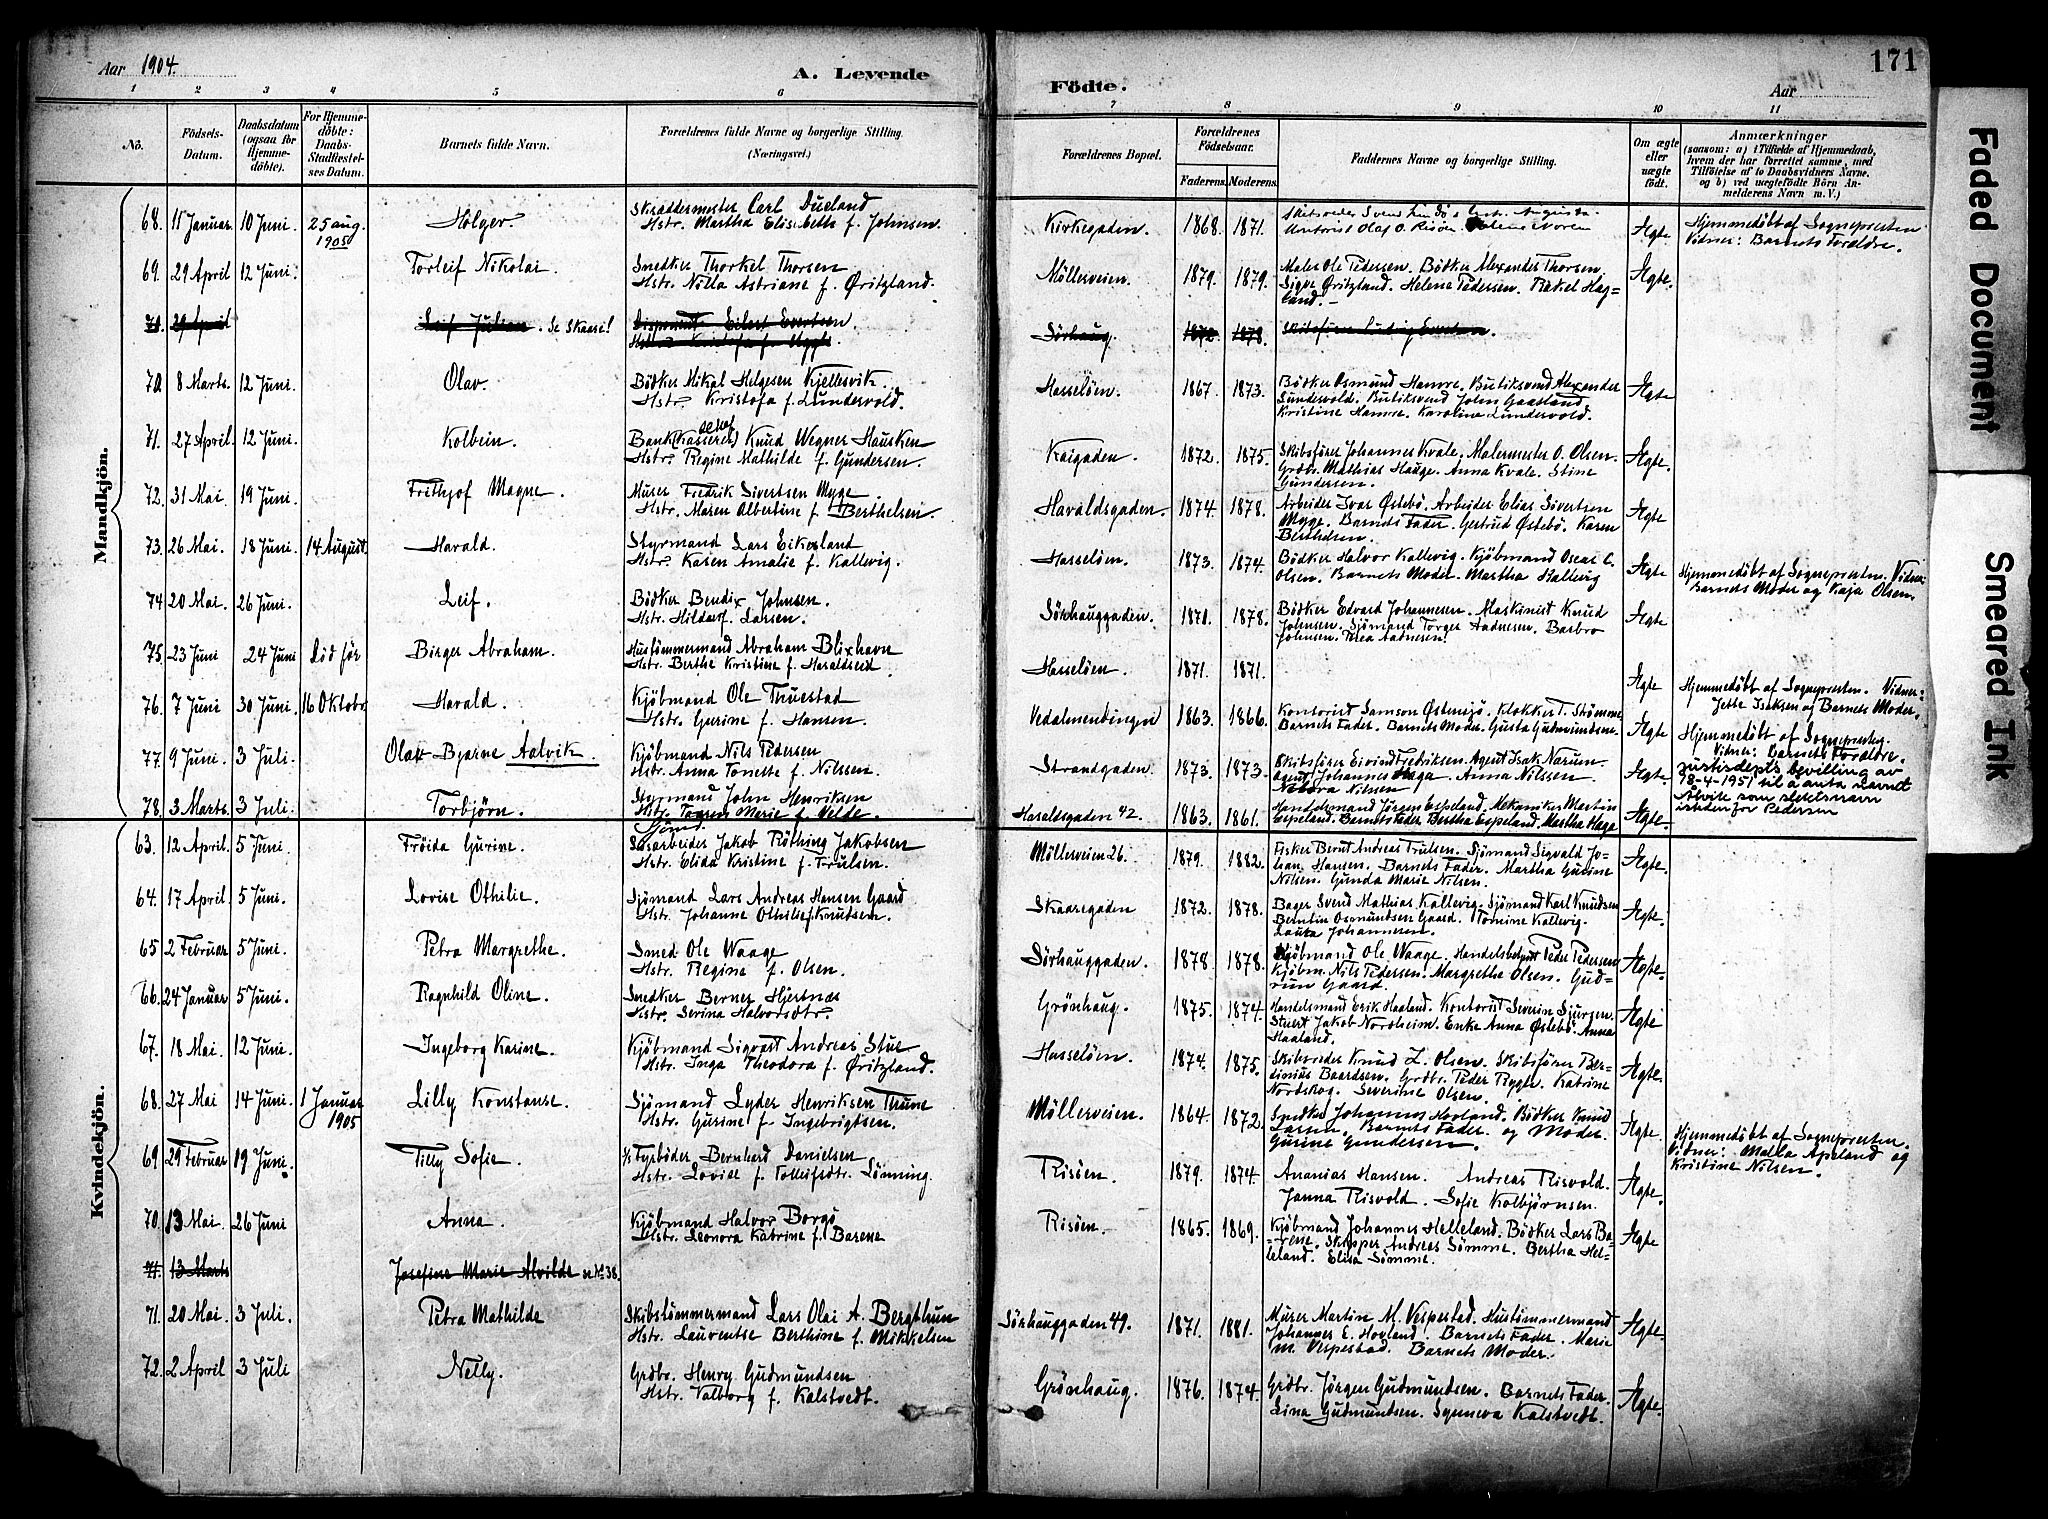 171
Aar 1904.
A. Levende
Födte.
Aar
1 2 3 4 5 6 7 8 9 10 11
No.
Födsels-Datum.
Daabsdatum (ogsaa for Hjemmedöbte).
For Hjemmedöbte: Daabs-Stadfæstelses Datum.
Barnets fulde Navn.
Forældrenes fulde Navne og borgerlige Stilling. (Næringsvei.)
Forældrenes Bopæl.
Forældrenes Födselsaar.
Faderens. Moderens.
Faddernes Navne og borgerlige Stilling.
Om ægte eller uægte födt.
Anmærkninger (saasom: a) i Tilfælde af Hjemmedaab, hvem der har forrettet samme, med Tilföielse af to Daabsvidners Navne, og b) ved uægtefödte Börn Anmelderens Navn m. V.)
Mandkjön.
68. 11 Januar. 10 Juni. 25 aug. 1905 Holger. Skræddermester Carl Dueland Hstr. Martha Elisabeth f. Johnsen. Kirkegaden. 1868. 1871. Ægte Hjemmedöbt af Sognepresten Vidner: Barnets Foreldre.
69. 29 April 12 Juni. Torleif Nikolai. Snedker Thorkel Thorsen Hstr. Nilla Astriane f. Øritzland. Möllerveien. 1879. 1879. Maler Ole Pedersen. Bödker Alexander Thorsen. Signe Öritzland. Helene Pedersen. Rakel Hagland. Ægte.
71. 29 April Leif Julian. Se Skaare! Eilert Evertsen. Sörhaug. 1872. 1878.
70. 8 Marts. 12 Juni. Olav. Bödker Mikal Helgesen Kjellesvik. Hstr. Kristofa f. Lundervold. Hasselöen. 1867. 1873. Bödker Osmund Hamre. Butiksvend Alexander Lundervold. Butiksvend John Gaasland Kristine Hamre. Karoline Lundervold. Ægte
71. 27 April. 12 Juni. Kolbein. Bank(kasserer) Knud Wegner Hausken Hstr. Regine Mathilde f. Gundersen. Kaigaden. 1872. 1875. Skibsförer Johannes Kvale. Malermester O. Olsen. Grdbr. Mathias Hauge. Anna Kvale. Stine Gundersen. Ægte.
72. 31 Mai. 19 Juni. Frithjof Magne. Murer Fredrik Sivertsen Myge. Hstr. Maren Albertine f. Berthelsen. Haraldsgaden. 1874. 1878. Arbeider Ivar Østebö. Arbeider Elias Sivertsen Mygge. Barnets Fader. Gertrud Østebö. Karen Berthelsen. Ægte
73. 26 Mai. 18 Juni. 14 August Harald. Styrmand Lars Eikesland Hstr. Karen Amalie f. Kallevig. Hasselöen. 1873. 1874. Bödker Halvor Kallevig. Kjöbmand Oscar C. Olsen. Barnets Moder. Martha Kallevig Ægte Hjemmedöbt af Sognepresten. Vidner: Barnets Moder og Kaja Olsen.
74. 20 Mai. 26 Juni. Leif. Bödker Bendix Johnsen. Hstr. Hilda f. Larsen. Sörhauggaden. 1871. 1878. Bödker Edvard Johannesen. Maskinist Knud Johnsen. Sjömand Torger Aadnesen. Barbro Johnsen. Thea Aadnesen. Ægte
75. 23 Juni 24 Juni Död för Birger Abraham. Hustömmermand Abraham Blixhavn Hstr. Berthe Kristine f. Haraldseid Hasselöen. 1871. 1871. Ægte Hjemmedöbt af Sognepresten. Vidner: Jette Isaksen og Barnets Moder.
76. 7 Juni 30 Juni. 16 Oktober Harald. Kjöbmand Ole Thuestad Hstr. Gurine f. Hansen. 1863. 1866. Kontorist Samson Østensjö. Klokker T. Strömme Barnets Fader. Barnets Moder. Gusta Gudmundsen. Ægte Hjemmedöbt af Sognepresten. Vidner: Barnets Foreldre.
77. 9 Juni. 3 Juli. Olaf Bjarne Aalvik. Kjöbmand Nils Pedersen Hstr. Anna Tonette f. Nilssen. Strandgaden. 1873. 1873. Skibsförer Eivind Fredriksen. Agent Isak Narum. Agent Johannes Haga Anna Nilssen Nebora Nilsen Ægte Justisdepts bevilling av 28-4-1951 til å anta navnet Ålvik som slektsnavn istedenfor Pedersen
78. 3 Marts. 3 Juli. Torbjörn. Styrmand John Henriksen Hstr. Marie f. Velde. Haraldsgaden 42. 1863. 1861. Handelsmand Jörgen Espeland. Mekaniker Martin Espeland. Barnets Fader. Bertha Espeland. Martha Haga Ægte.
Kvindekjön.
63. 12 April. 5 Juni. Fröida Gurine. Jakob Röthing Jakobsen Hstr. Elida Kristine f. Trulsen. Möllerveien 26. 1879. 1882. Fisker Bernt Andreas Trulsen. Sjömand Sigvald Johan Hansen. Barnets Fader. Martha Gurine Nilsen. Gunda Marie Nilsen. Ægte.
64. 17 April. 5 Juni. Lovise Othilie. Sjömand Lars Andreas Hansen Gaard Hstr. Johanne Othilie f. Knudsen. Skaaregaden 1872. 1878. Bager Svend Mathias Kallevig. Sjömand Karl Knudsen Berntin Osmundsen Gaard. Tomine Kallevig. Laura Johannesen. Ægte.
65 2 Februar 5 Juni. Petra Margrethe. Smed Ole Waage Hstr. Regine f. Olsen. Sörhauggaden. 1878. 1878. Kjöbmand Ole Waage. Handelsbetjent Peder Pedersen Kjöbm. Nils Pedersen. Margrethe Olsen. Gudrun Gaard. Ægte.
66. 24 Januar 5 Juni. Ragnhild Oline. Snedker Berner Hjertnæs Hstr. Serina Halvorsdtr. Grönhaug. 1875. 1874. Handelsmand Erik Haaland. Kontorist Severin Sjursen. Stuert Jakob Nordheim. Enke Anna Østebö. Anna Haaland. Ægte
67. 18 Mai. 12 Juni. Ingeborg Karine. Kjöbmand Sigvart Andreas Stue Hstr. Inga Theodora f. Øritzland. Hasselöen. 1874. 1875. Skibsreder Knud L. Olsen. Skibsförer Berdinius Baardsen. Grdbr. Peder Rygh. Katrine Nordskog. Severine Olsen. Ægte.
68. 27 Mai 14 Juni. 1 Januar 1905 Lilly Konstanse. Sjömand Lyder Henriksen Thune Hstr. Gurine f. Ingebrigtsen. Möllerveien. 1864. 1872. Snedker Johannes Hovland. Bödker Knud Larsen. Barnets Fader. og Moder. Gurine Gundersen. Ægte. Hjemmedöbt af Sognepresten. Vidner: Malla Apeland og Kristine Nilsen.
69 29 Februar 19 Juni. Tilly Sofie. Fyrböder Bernhard Danielsen Hstr. Lovise f. Tollefsdtr. Lönning. Risöen. 1879. 1874. Ananias Hansen. Andreas Risvold. Janna Risvold. Sofie Kolbjörnsen. Ægte.
70. 13 Mai. 26 Juni Anna. Kjöbmand Halvor Borgö Hstr. Leonora Katrine f. Barene Risöen. 1865. 1869. Kjöbmand Johannes Helleland. Bödker Lars Barene. Skipper Andreas Sömme. Bertha Helleland. Elisa Sömme. Ægte
71. 13 Marts Josefine Marie Alvilde se No. 38.
71. 20 Mai. 3 Juli. Petra Mathilde Skibstömmermand Lars Olai A. Bergthun Hstr. Laurentse Berthine f. Mikkelsen Sörhauggaden 49. 1871. 1881. Murer Martin M. Vespestad. Hustömmermand Johannes E. Hovland. Barnets Fader. Marie M. Vespestad. Barnets Moder. Ægte.
72. 2 April 3 Juli Nelly. Grdbr. Henry Gudmundsen Hstr. Valborg f. Kalstvedt. Grönhaug. 1876. 1874. Grdbr. Jörgen Gudmundsen. Barnets Fader. Lina Gudmundsen. Synneva Kalstvedt. Ægte.
Faded Document
Smeared Ink